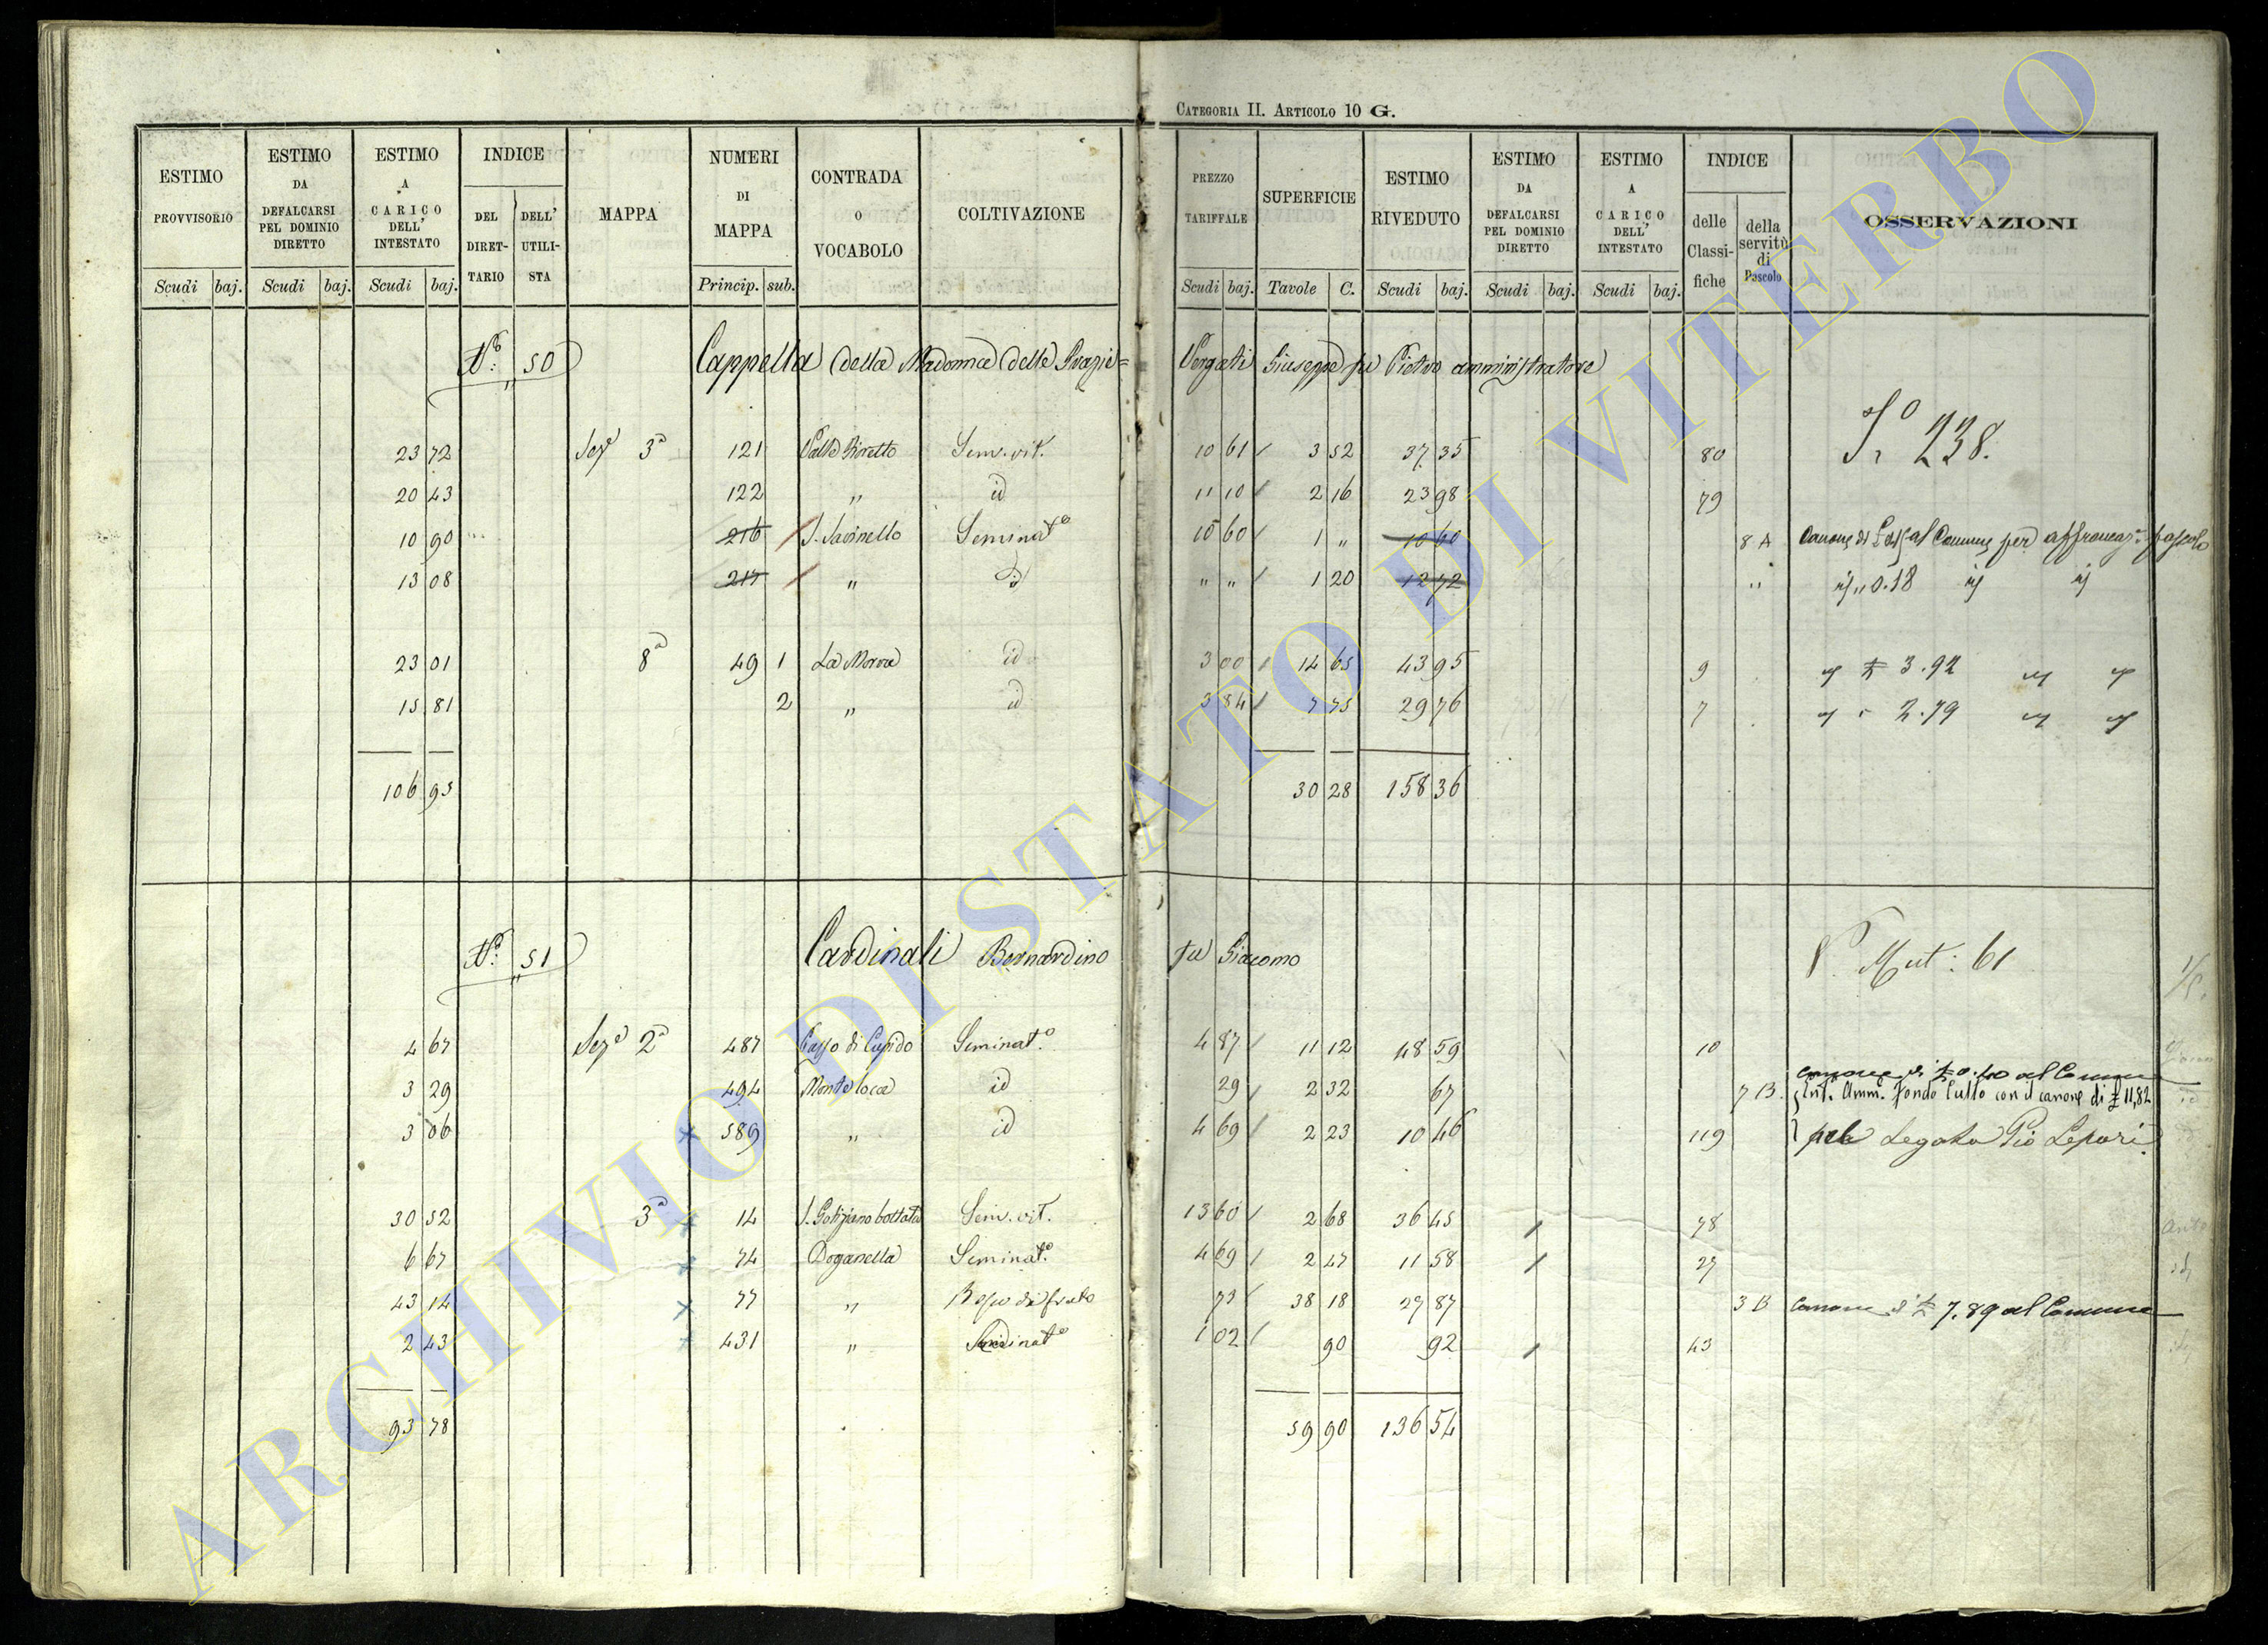 CATEGORIA II. ARTICOLO 10 G.
ESTIMO PROVVISORIO | ESTIMO DA DEFALCARSI PEL DOMINIO DIRETTO | ESTIMO A CARICO DELL' INTESTATO | INDICE DEL DIRETTARIO | DELL' UTILISTA | MAPPA | NUMERI DI MAPPA | CONTRADA O VOCABOLO | COLTIVAZIONE | PREZZO TARIFFALE | SUPERFICIE | ESTIMO RIVEDUTO | ESTIMO DA DEFALCARSI PEL DOMINIO DIRETTO | ESTIMO A CARICO DELL' INTESTATO | INDICE delle Classifiche | della servitù di Pascolo | OSSERVAZIONI
Scudi baj. | Scudi baj. | Scudi baj. | Princip. sub. | Scudi baj. | Tavole C. | Scudi baj. | Scudi baj. | Scudi baj.
No. 50 Cappella della Madonna delle Grazie = Vergati Giuseppe fu Pietro amministratore
238.
23 72 Sez.e 3a 121 Valle Sem. vit. 10 61 3 52 37 35 80
20 43 122 " id 11 10 2 16 23 98 79
10 90 216 S. Savinello Seminat.o 10 60 1 " 10 60 8 A Canone di al Comune per affrancaz.e pascolo
13 08 217 " id " " 1 20 12 72 " 0.18
23 01 8a 49 1 La Morra id 3 00 14 65 43 95 9 3.92
15 81 2 " id 3 84 7 75 29 76 7 2.79
106 95 30 28 158 36
No. 51 Cardinali Bernardino fu Giacomo
Mut: 61
4 67 Sez.e 2a 487 Casso di Cupido Seminat.o 4 87 11 12 48 59 10
canone di £ 0.40 al Comune
3 29 494 Monteloca id 29 2 32 67 7 B. Int. Amm. Fondo Culto con il canone di £ 11,82
3 06 589 " id 4 69 2 23 10 46 119 pel Legato Pio Lepori
30 52 3a 14 Sem. vit. 13 60 2 68 36 45 78
6 67 74 Doganella Seminat.o 4 69 2 47 11 58 27
43 14 77 " 73 38 18 27 87 3 B Canone di £ 7.89 al Comune
2 43 431 " 1 02 90 92 43
93 78 59 90 136 54
ARCHIVIO DI STATO DI VITERBO